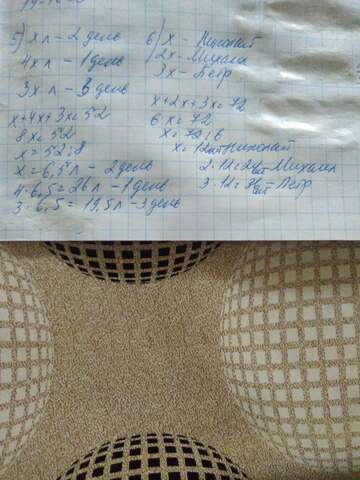 5) x л - 2 день
4x л - 1 день
3x л - 3 день
x+4x+3x=52
8x=52
x=52:8
x=6,5 л - 2 день
4·6,5=26 л - 1 день
3·6,5=19,5 л - 3 день
6) x - Николай
2x - Михаил
3x - Петр
x+2x+3x=72
6x=72
x=72:6
x=12 шт Николай
2·12=24 шт Михаил
3·12=36 шт Петр